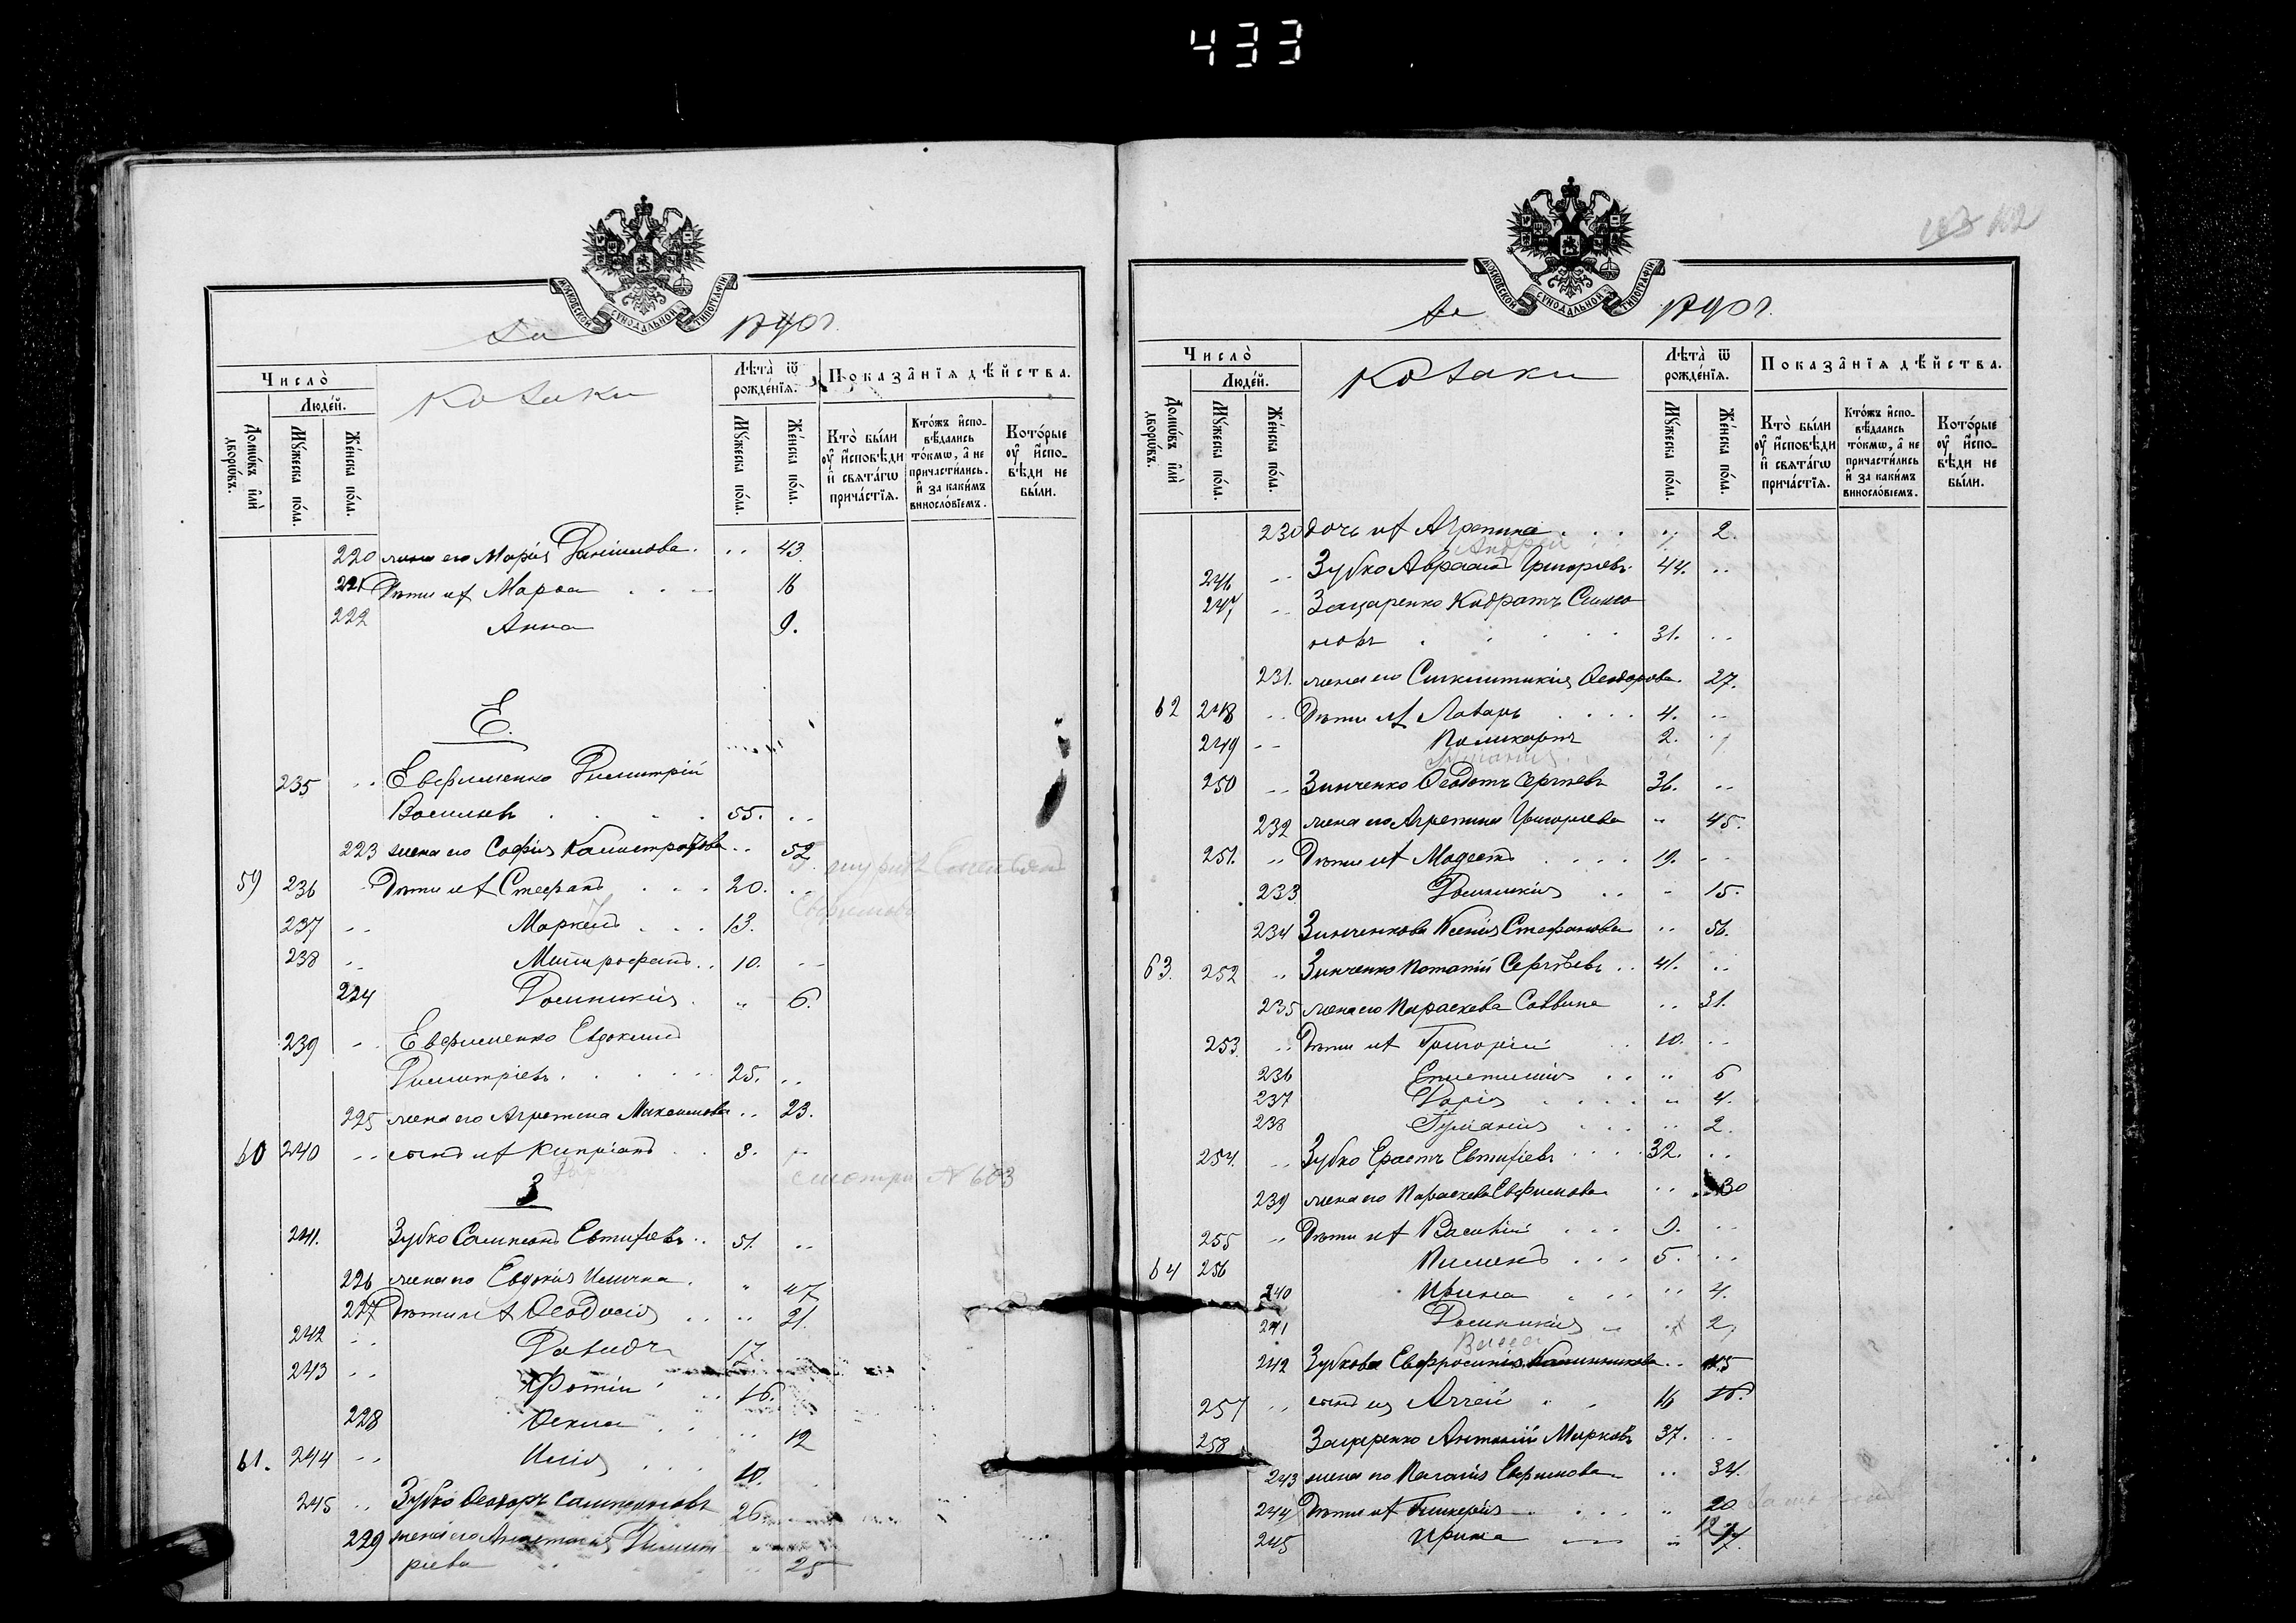 433
МОСКОВСКОЙ СѴНОДАЛЬНОЙ ТИПОГРАФІИ
Число̀
Людéй.
Домѡ́въ и҆лѝ дворѡ́въ.
Мꙋ́жеска по́ла.
Же́нска по́ла.
Козаки
Лѣта̀ ѿ рожде́нїѧ.
Мꙋ́жеска по́ла.
Же́нска по́ла.
Показа̑нїѧ дѣ́йства.
Кто̀ бы́ли ᲂу҆ и҆сповѣди и҆ свѧта́гѡ прича́стїѧ.
Кто́жъ и҆сповѣ́дались то́кмѡ, а҆ не причасти́лись. и҆ за каки́мъ винослóвїемъ.
Кото́рые ᲂу҆ и҆сповѣди не бы́ли.
220 жена его Марія Даніилова . .. 43
221 Дѣти их Марѳа . . .. 16
222 Анна 9.
Е.
235 .. Евфименко Димитрій
Васильевъ . . . . 55. ..
223 жена его Софія Калистратова .. 52
59 236 Дѣти их Стефанъ . . . 20. ..
237 .. Маркелъ . . . 13.
238 .. Митрофанъ .. 10. ..
224 Домникія . „ 6.
239 .. Евфименко Евдокимъ
Димитріевъ . . . . 25. ..
225 жена его Агрипина Максимова .. 23.
60 240 .. сынъ их Кипріанъ . . 3.
смотри № 603
З
241. Зубко Сампсонъ Евтихіевъ .. 51. ..
226 жена его Евдокія Ильина . „ 47
227 Дѣти их Ѳеодосія .. .. 21.
242 .. Давидъ 17.
243 .. Фотій .. 16.
228 Ѳекла . . .. 12
61. 244 .. Илія . . . 10.
245 .. Зубко Ѳеодоръ Сампсоновъ 26
229 жена его Анастасія Димит
ріева .. 25
МОСКОВСКОЙ СѴНОДАЛЬНОЙ ТИПОГРАФІИ
Число̀
Людéй.
Домѡ́въ и҆лѝ дворѡ́въ.
Мꙋ́жеска по́ла.
Же́нска по́ла.
Козаки
Лѣта̀ ѿ рожде́нїѧ.
Мꙋ́жеска по́ла.
Же́нска по́ла.
Показа̑нїѧ дѣ́йства.
Кто̀ бы́ли ᲂу҆ и҆сповѣди и҆ свѧта́гѡ прича́стїѧ.
Кто́жъ и҆сповѣ́дались то́кмѡ, а҆ не причасти́лись и҆ за каки́мъ винослóвїемъ.
Кото́рые ᲂу҆ и҆сповѣди не бы́ли.
230 дочь их Агрипина . . . „ 2.
Андрей
246 .. Зубко Авраамъ Григоріевъ. 44. ..
247 .. Защаренко Кодратъ Симео
новъ . . . . 31. ..
231. жена его Синклитикія Ѳеодорова. 27.
62 248 .. Дѣти их Лазарь . . . . 4. ..
249 .. Поликарпъ 2.
250 .. Зинченко Ѳеодотъ Сергіевъ 36. ..
232 жена его Агрипина Григоріева „ 45.
251. „ Дѣти их Модестъ . . . . 19. ..
233 Домникія .. 15.
234 Зинченкова Ксенія Стефанова .. 56.
63. 252 .. Зинченко Потапій Сергѣевъ .. 41. ..
235 жена его Параскева Саввина .. 31.
253 .. Дѣти их Григорій .. 10. ..
236 Епистимія . . „ 6
237 Дарія . . . . „ 4.
238 Гуліанія . . . .. 2.
254. .. Зубко Ерастъ Евтихіевъ . . . . 32. ..
239 жена его Параскева Евфимова .. 30
255 .. Дѣти их Василій . . . 9. ..
64 256 Пименъ . . . 5. ..
240 Ирина . . . .. 4.
241 Домникія .. 2
242 Зубкова Евфросинія Калинникова .. 45
257 .. сынъ ея Аггей . . 16
258 Защаренко Антоній Марковъ 37. ..
243 жена его Пелагія Евфимова .. 34.
244 Дѣти их Гликерія . . . „ 20
245 Ирина „ 17.